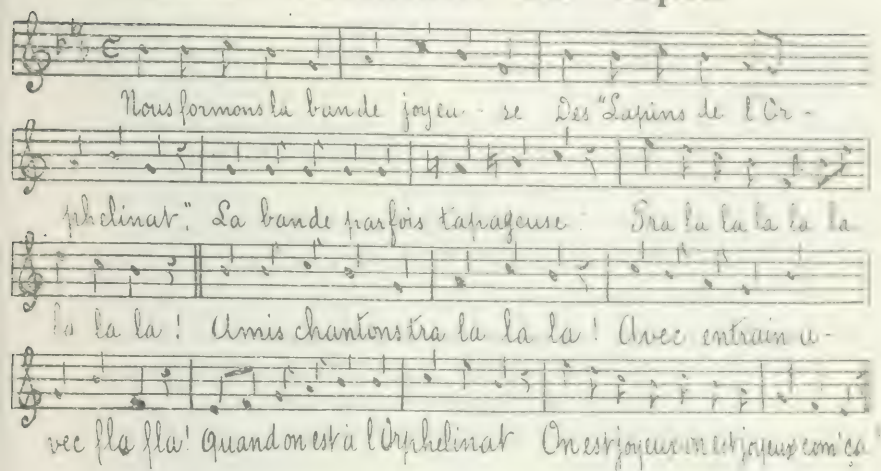 Nous formons la bande joyeu - se Des "Lapins de l'Or -
phelinat". La bande parfois tapageuse Tra la la la la la
la la la ! Amis chantons tra la la la ! Avec entrain a -
vec fla fla ! Quand on est à l'Orphelinat On est joyeux on est joyeux com' ça